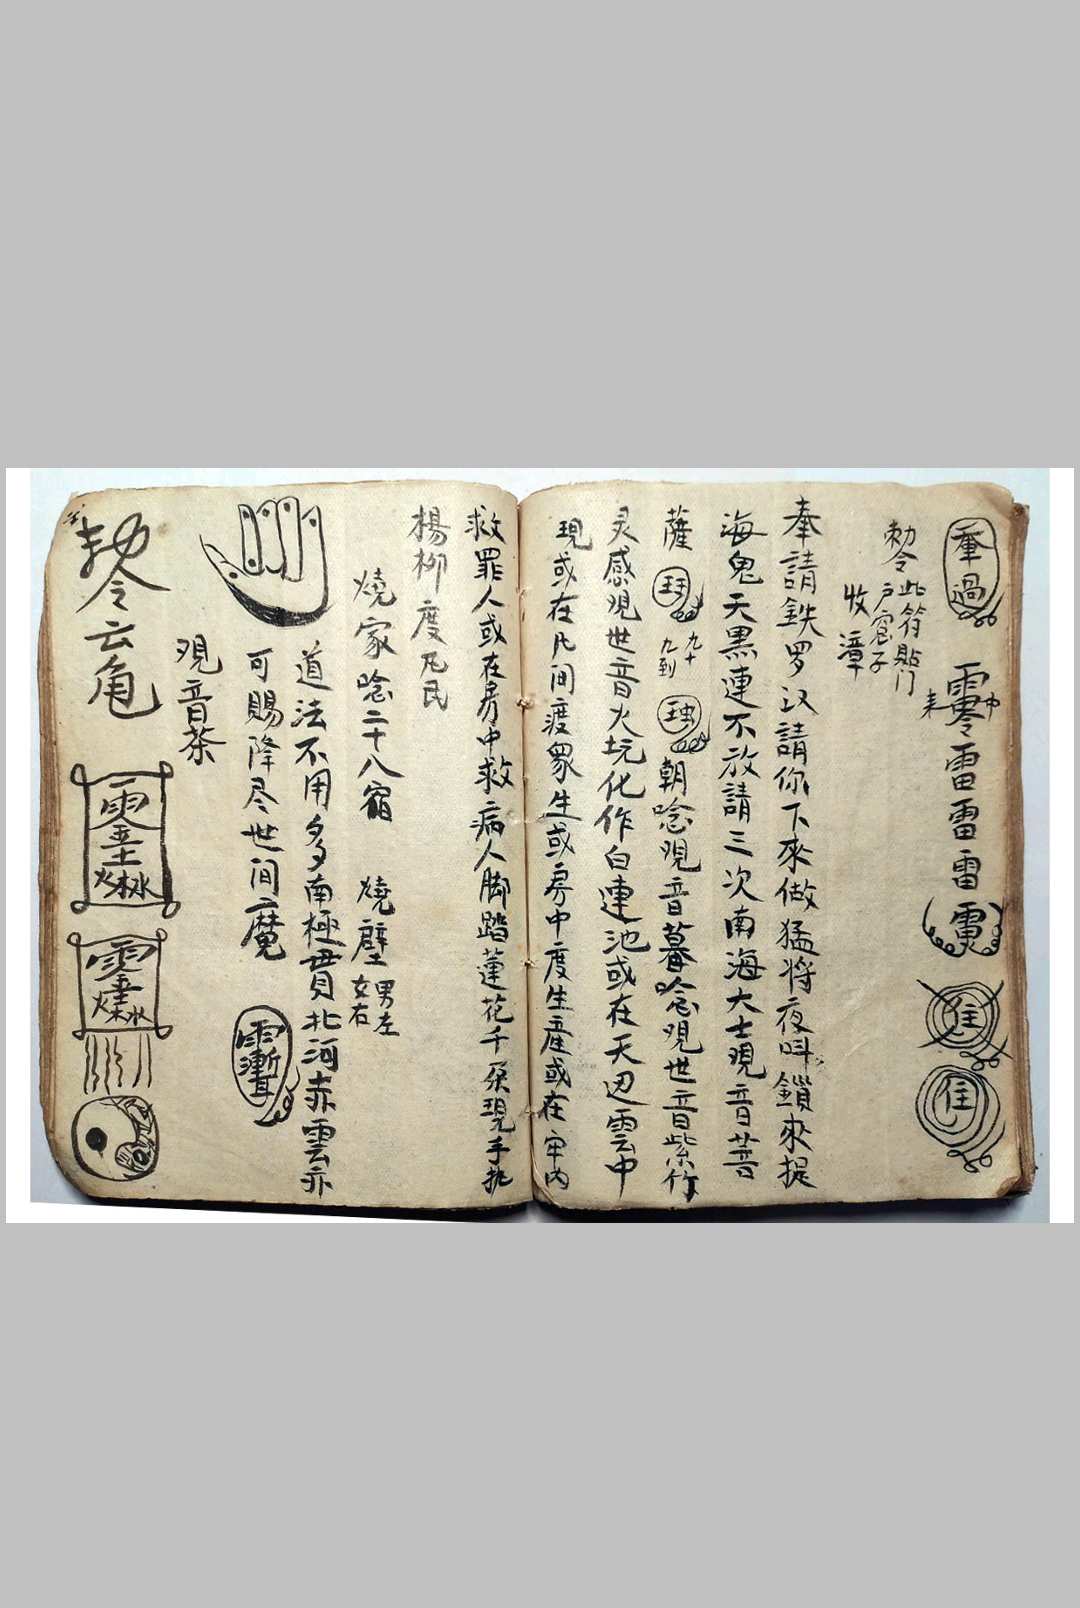 過
雷雷雷
勅令
此符貼門
戶窓子
收
奉請鉄罗汉請你下來做猛將夜叫鎖來提
海鬼天黑連不放請三次南海大士現音菩
薩
九十
九到
朝唸观音暮唸观世音紫竹
灵感观世音火坑化作白連池或在天边雲中
現或在凡间渡眾生或房中度生產或在牢内
救罪人或在房中救病人脚踏蓮花千葉現手执
楊柳度凡民
燒家唸二十八宿
燒壁
男左
女右
道法不用多南極貫北河赤雲亦
可賜降尽世间魔
观音茶
勅令云